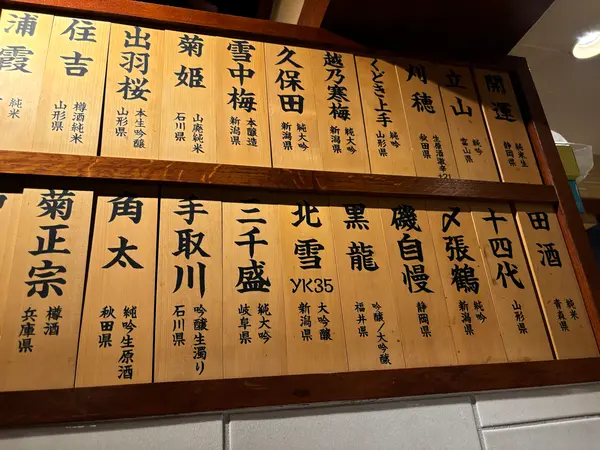 開運
純米生
静岡県
立山
純吟
富山県
刈穂
生原酒激辛
秋田県
くどき上手
純吟
山形県
越乃寒梅
純大吟
新潟県
久保田
純大吟
新潟県
雪中梅
本醸造
新潟県
菊姫
山廃純米
石川県
出羽桜
本生吟醸
山形県
住吉
樽酒純米
山形県
浦霞
純米
田酒
純米
青森県
十四代
山形県
〆張鶴
純吟
新潟県
磯自慢
静岡県
黒龍
吟醸/大吟醸
福井県
北雪
YK35
大吟醸
新潟県
三千盛
純大吟
岐阜県
手取川
吟醸生濁り
石川県
角太
純吟生原酒
秋田県
菊正宗
樽酒
兵庫県